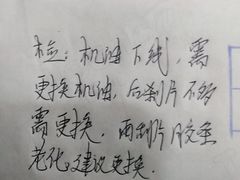 检：机油下线，需
更换机油，后刹片不多
需更换，雨刮片胶条
老化，建议更换.